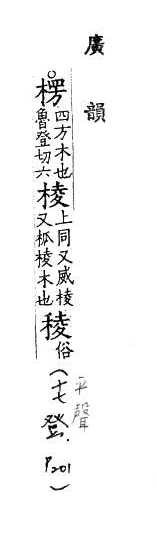 廣韻
。楞四方木也魯登切六棱上同又威棱又柧棱木也稜俗(十七登. P201)
平聲